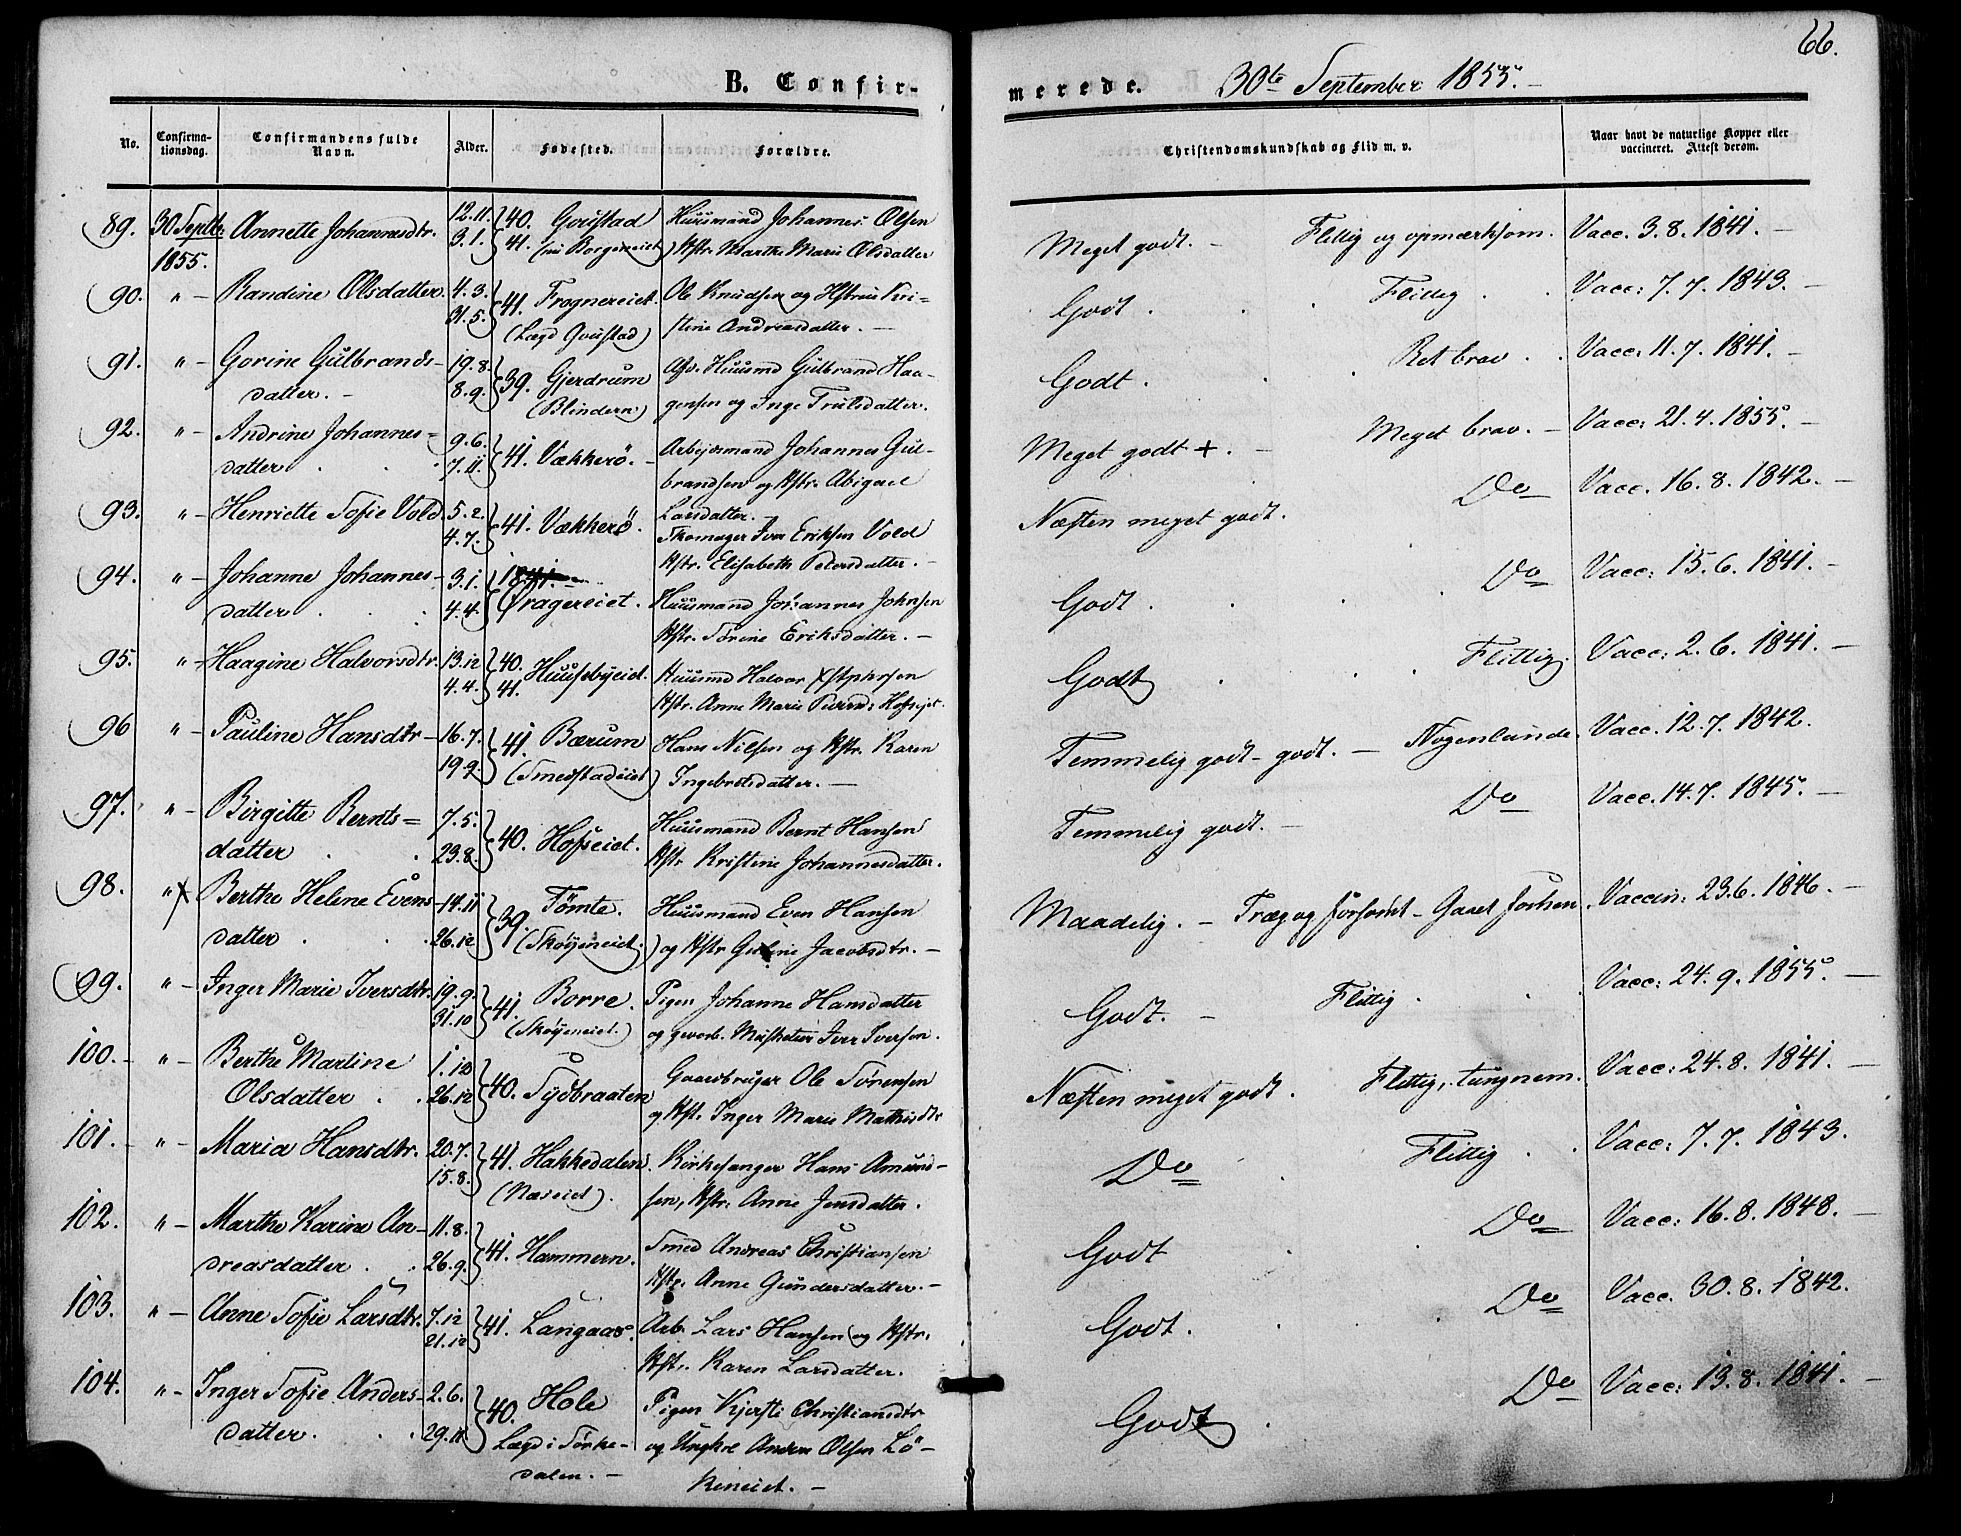 B. Confir-
No. Confirma-tionsdag. Confirmandens fulde Navn. Alder. Fødested. Forældre.
89. 30 Septbr. Annette Johannesdtr. 12.11. 40. Goustad Huusmand Johannes Olsen
1855. 3.1. 41. (nu Borgeneiet) Hstr. Marthe Marie Olsdatter
90. " - Randine Olsdatter. 4.3. 41. Frognereiet. Ole Knudsen og Hstru Kri-
31.5. (Lægd Goustad) stine Andreasdatter. -
91. " - Gorine Gulbrands- 19.8. 39. Gjerdrum Afd. Huusmd Gulbrand Haa-
datter. - 8.9. (Blindern) gensen og Inge Trulsdatter.
92. " - Andrine Johannes= 9.6. 41. Vækkerö. - Arbejdsmand Johannes Gul-
datter . . . 7.11. brandsen og Hstr. Abigael
Larsdatter. -
93. " - Henriette Sofie Vold. 5.2. 41. Vækkerö. Skomager Iver Eriksen Vold
4.7. Hstr. Elisabeth Petersdatter. -
94. " - Johanne Johannes- 3.1. 1841. -
datter . . . 4.4. Øragereiet. Huusmand Johannes Johnsen
Hstr. Sörine Eriksdatter. -
95. " - Haagine Halvorsdtr. 13.12 40. Huusebyeiet. Huusmd Halvor
4.4. 41. Hstr. Anne Marie
96 " - Pauline Hansdtr - 16.7. 41. Bærum Hans Nilsen og Hstr. Karen
19.9. (Smedstadeiet) Ingebretsdatter. -
97. " - Birgitte Bernts= 7.5. 40. Hofseiet. Huusmand Bernt Hansen
datter . . 23.8. Hstr Kristine Johannesdatter.
98. " - Berthe Helene Evens- 14.11 39. Tömte. Huusmand Even Hansen
datter . . . 26.12 (Skøyeneiet.) og Hstr Jacobsdtr. -
99. " - Inger Marie Iversdtr. 19.9. 41. Borre. Pigen Johanne Hansdatter
31.10 (Skøyeneiet.) og gevorb. Musketeer Iver Iversen.
100. - " - Berthe Martine 1.12 40. Sydbraaten Gaardbruger Ole Sörensen
Olsdatter . . 26.12 og Hstr. Inger Marie Mathisdtr
101. - " - Maria Hansdtr. 20.7. 41. Hakkedalen. Kirkesanger Hans Amund-
15.8. (Næseiet). sen, Hstr. Anne Jensdatter.
102. " - Marthe Karine An- 11.8. 41. Hammern. Smed Andreas Christiansen
dreasdatter . . 26.9. Hstr. Anne Gundersdatter. -
103. " - Anne Sofie Larsdtr. 7.12 41. Langaas. Arb. Lars Hansen og Hstr.
21.12 Hstr. Karen Larsdatter.
104. " - Inger Sofie Anders- 2.6. 40. Hole Pigen Kjersti Christiansdtr
datter. . . 29.11 Lægd i Sörke- og Ungkrl Anders Olsen Lö-
dalen. - keneiet. -
66.
merede. 30te September 1855. -
Christendomskundskab og Flid m. v. Naar havt de naturlige Kopper eller vaccineret. Attest derom.
Meget godt. - Flittig og opmærksom. Vacc. 3.8.1841. -
Godt . Flittig . . Vacc: 7.7.1843. -
Godt . . . Ret brav . . Vacc: 11.7.1841. -
Meget godt +. - Meget brav. - Vacc: 21.4.1855. -
Næsten meget godt. Do Vacc. 16.8.1842. -
Godt . . . . Do Vacc: 15.6.1841. -
Godt . . . Flittig. Vacc: 2.6.1841. -
Temmelig godt - godt. - Nogenlunde. Vacc. 12.7.1842.
Temmelig godt. - Do Vacc. 14.7.1845. -
Maadelig. - Træg og forsømt - Vaccin: 23.6.1846. -
Godt. - Flittig . . . Vacc: 24.9.1855. -
Næsten meget godt. Flittig, tungnem. Vacc: 24.8.1841. -
Do . Flittig . . Vacc: 7.7.1843.
Godt . . Do Vacc: 16.8.1848. -
Godt. . . Do Vacc. 30.8.1842.
Godt . . Do Vacc: 13.8.1841. -